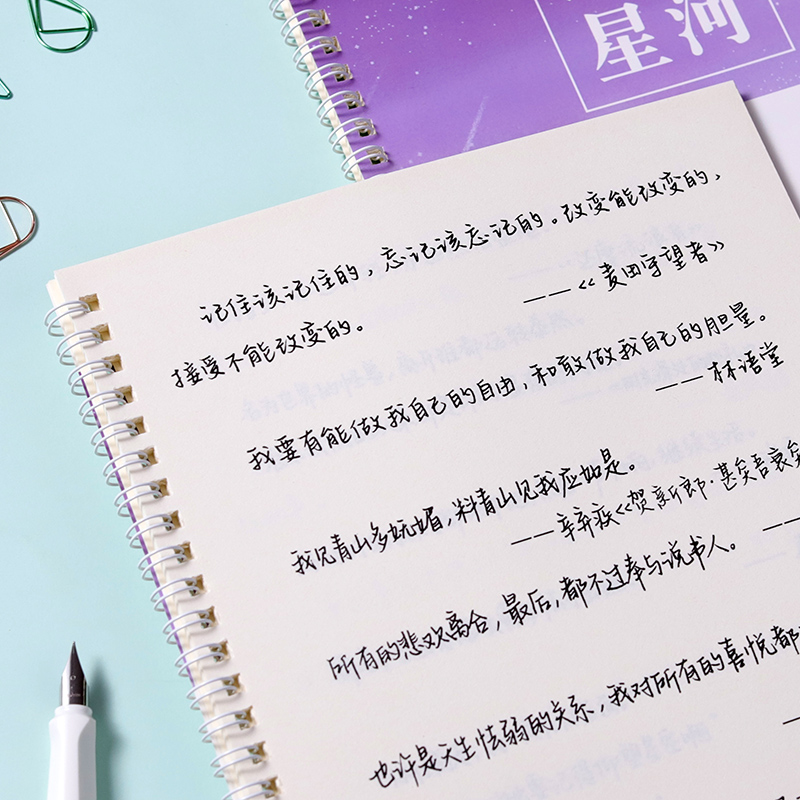 星河
记住该记住的，忘记该忘记的。改变能改变的，
接受不能改变的。
——《麦田守望者》
我要有能做我自己的自由，和敢做我自己的胆量。
——林语堂
我见青山多妩媚，料青山见我应如是。
——辛弃疾《贺新郎·甚矣吾衰矣
所有的悲欢离合，最后，都不过奉与说书人。
——
也许是天生怯弱的关系，我对所有的喜悦都